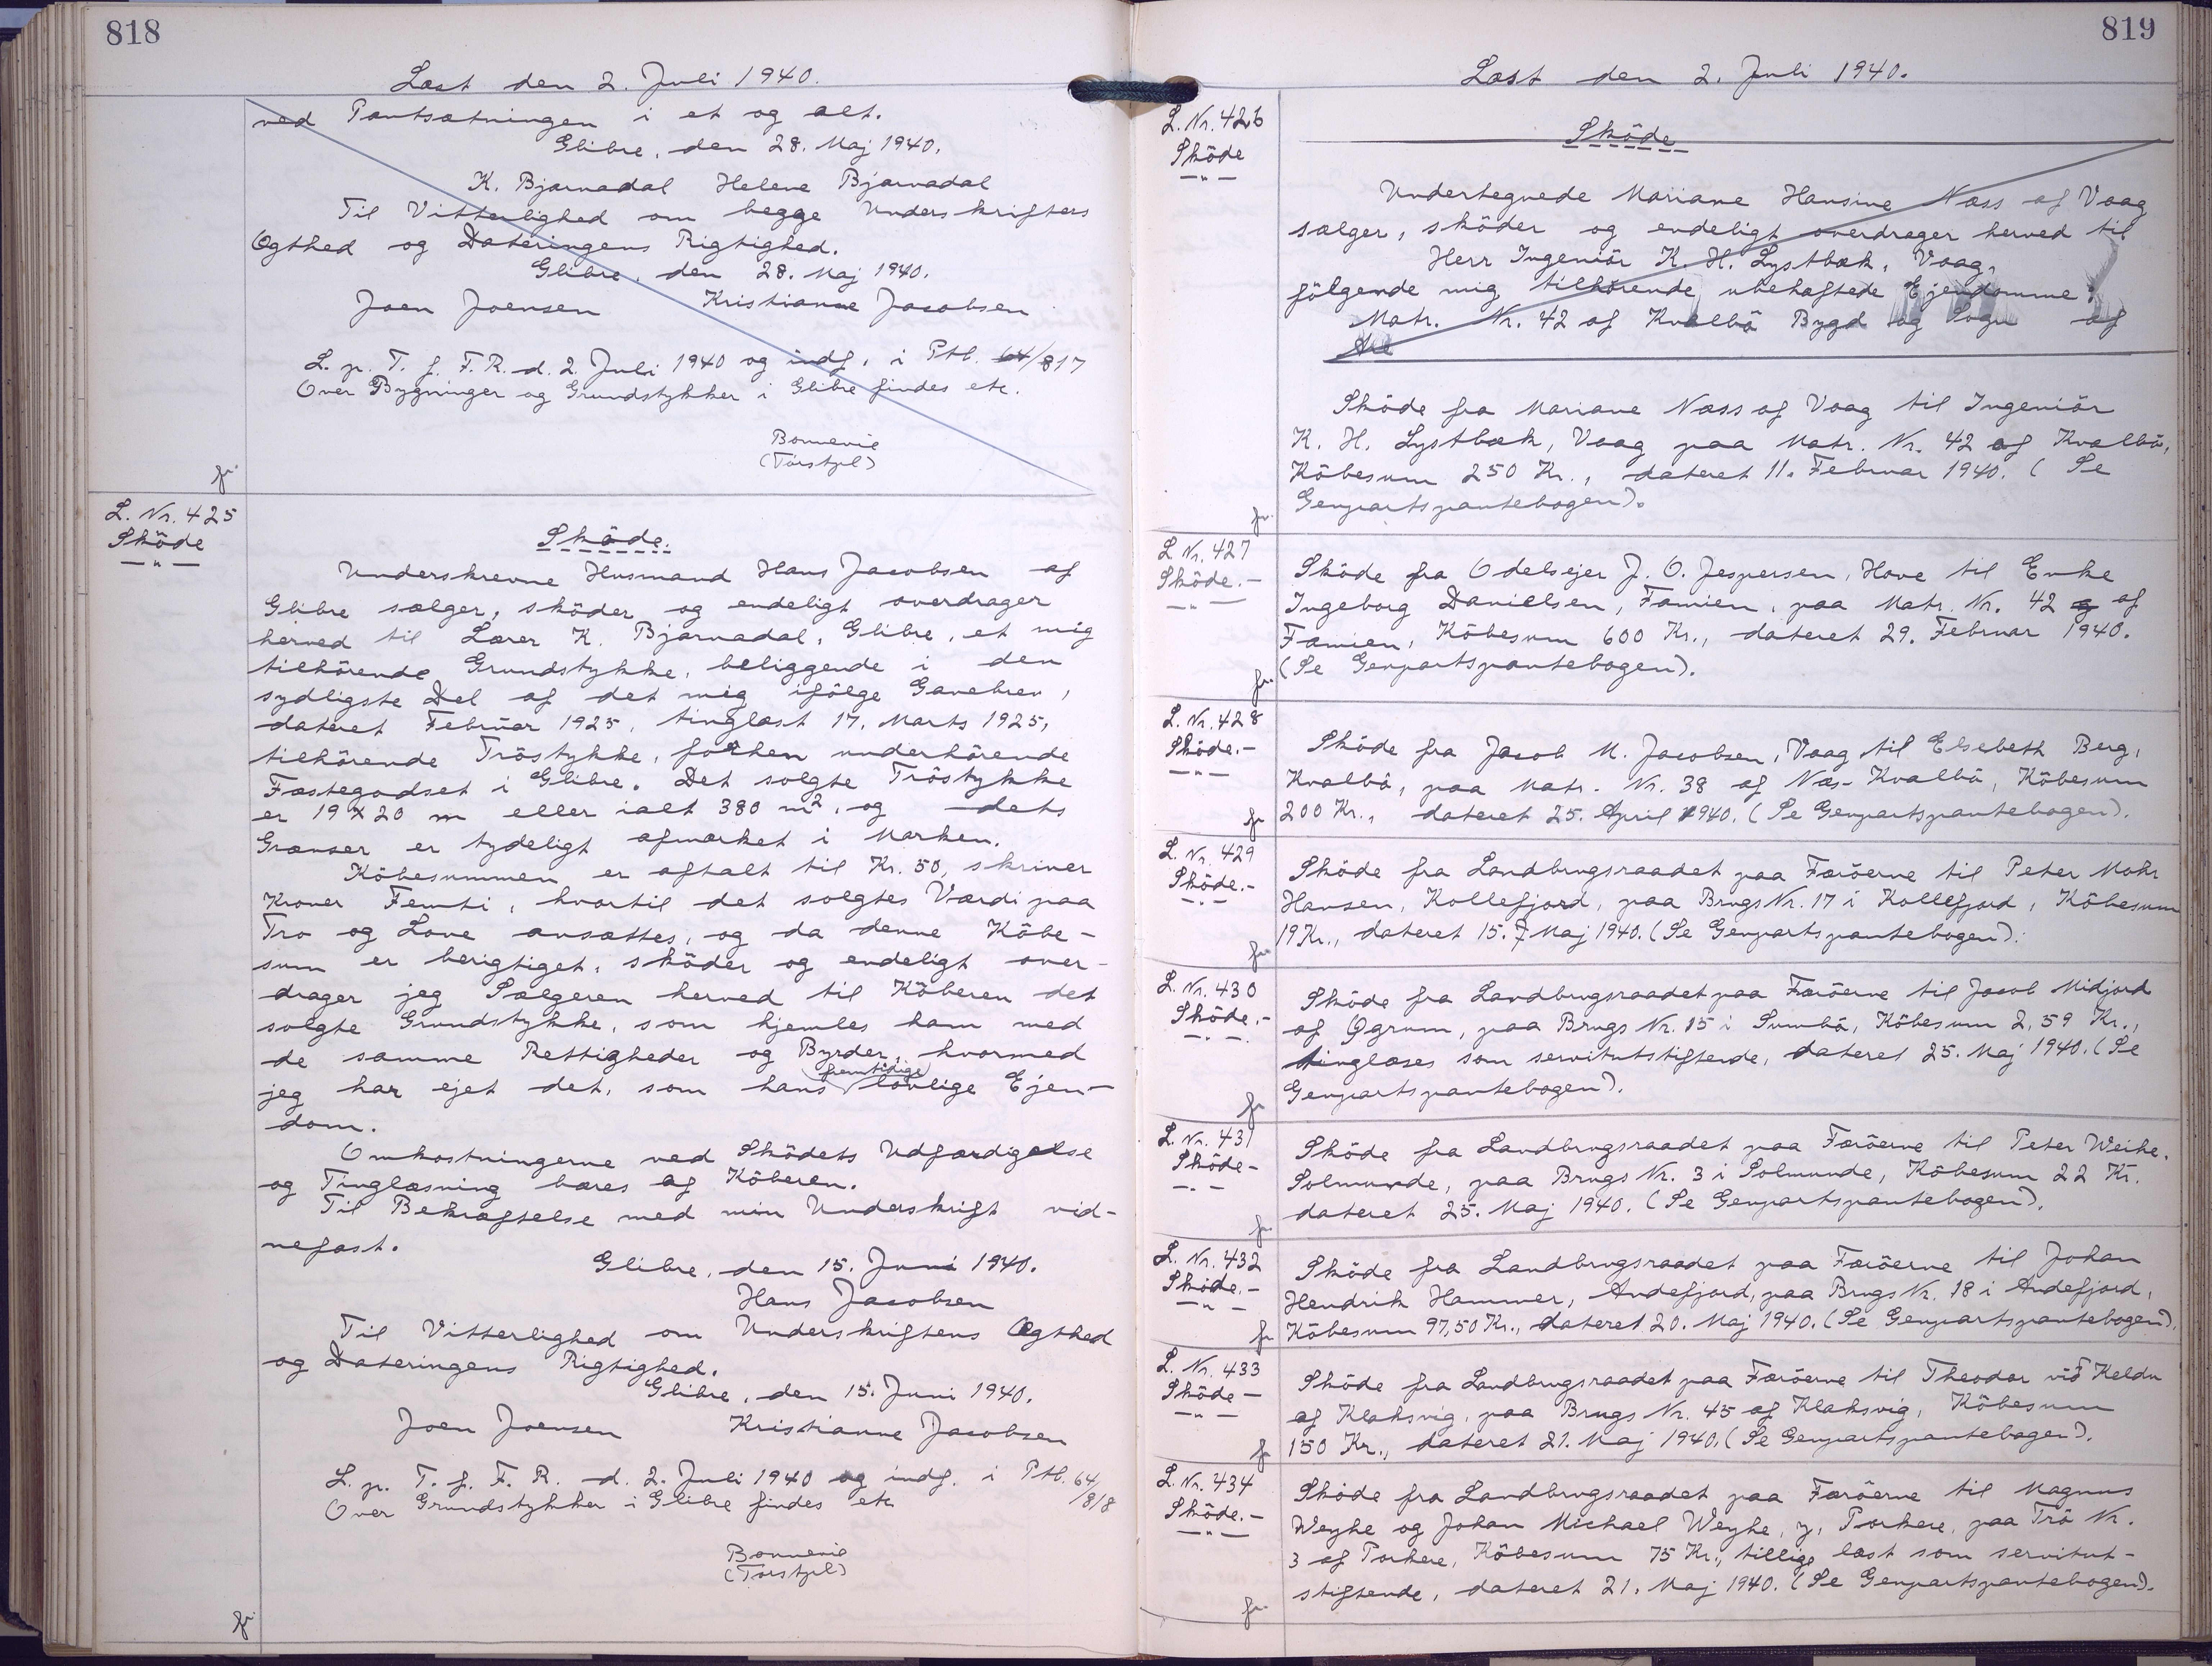 818
Læst den 2. Juli 1940.
ved Pantsætningen i et og alt.
Glibre, den 28. Maj 1940.
K. Bjarnadal Helene Bjarnadal
Til Vitterlighed om begge Underskrifters
Ægthed og Dateringens Rigtighed.
Glibre, den 28. Maj 1940.
Joen Joensen Kristianne Jacobsen
L. p. T. f. F. R. d. 2. Juli 1940 og indf. i Ptb. 64/817
Over Bygninger og Grundstykker i Glibre findes etc.
Bonnevie
(Torstpl)
fr.
L. Nr. 425
Sköde
—"—
Sköde.
Underskrevne Husmand Hans Jacobsen af
Glibre sælger, sköder og endeligt overdrager
herved til Lærer K. Bjarnadal, Glibre, et mig
tilhörende Grundstykke, beliggende i den
sydligste Del af det mig ifölge Gavebrev,
dateret Februar 1925, tinglæst 17. Marts 1925,
tilhörende Tröstykke, forhen underhörende
Fæstegodset i Glibre. Det solgte Tröstykke
er 19 x 20 m eller ialt 380 m², og dets
Grænser er tydeligt afmærket i Marken.
Köbesummen er aftalt til Kr. 50, skriver
Kroner Femti, hvortil det solgtes Værdi paa
Tro og Love ansættes, og da denne Köbe-
sum er berigtiget, sköder og endeligt over-
drager jeg Sælgeren herved til Köberen det
solgte Grundstykke, som hjemles ham med
de samme Rettigheder og Byrder, hvormed
jeg har ejet det, som hans (fremtidige) lovlige Ejen-
dom.
Omkostningerne ved Sködets Udfærdigelse
og Tinglæsning bæres af Köberen.
Til Bekræftelse med min Underskrift vid-
nefast.
Glibre, den 15. Juni 1940.
Hans Jacobsen
Til Vitterlighed om Underskriftens Ægthed
og Dateringens Rigtighed.
Glibre, den 15. Juni 1940.
Joen Joensen Kristianne Jacobsen
L. p. T. f. F. R. d. 2. Juli 1940 og indf. i Ptb. 64/818
Over Grundstykker i Glibre findes etc
Bonnevie
(Torstpl)
fr.
819
Læst den 2. Juli 1940.
L. Nr. 426
Sköde
—"—
Sköde
Undertegnede Mariane Hansine Næss af Vaag
sælger, sköder og endeligt overdrager herved til
Herr Ingeniör K. H. Lystbæk, Vaag,
fölgende mig tilhörende ubehæftede Ejendomme:
Matr. Nr. 42 af Kvalbö Bygd og Sogn af
Sköde fra Mariane Næss af Vaag til Ingeniör
K. H. Lystbæk, Vaag paa Matr. Nr. 42 af Kvalbö,
Köbesum 250 Kr., dateret 11. Februar 1940. (Se
Genpartspantebogen).
fr.
L. Nr. 427
Sköde.—
—"—
Sköde fra Odelsejer J. O. Jespersen, Hove til Enke
Ingeborg Danielsen, Famien, paa Matr. Nr. 42 g af
Famien, Köbesum 600 Kr., dateret 29. Februar 1940.
(Se Genpartspantebogen).
fr.
L. Nr. 428
Sköde.—
—"—
Sköde fra Jacob M. Jacobsen, Vaag til Elsebeth Berg,
Kvalbö, paa Matr. Nr. 38 af Næs-Kvalbö, Köbesum
200 Kr., dateret 25. April 1940. (Se Genpartspantebogen).
fr
L. Nr. 429
Sköde.—
—"—
Sköde fra Landbrugsraadet paa Færöerne til Peter Mohr
Hansen, Kollefjord, paa Brugs Nr. 17 i Kollefjord, Köbesum
19 Kr., dateret 15. Maj 1940. (Se Genpartspantebogen).
fr.
L. Nr. 430
Sköde.—
—"—
Sköde fra Landbrugsraadet paa Færöerne til Jacob Midjord
af Øgrum, paa Brugs Nr. 15 i Sumbö, Köbesum 2,59 Kr.,
tinglæses som servitutstiftende, dateret 25. Maj 1940. (Se
Genpartspantebogen).
fr
L. Nr. 431
Sköde—
—"—
Sköde fra Landbrugsraadet paa Færöerne til Peter Weihe,
Solmunde, paa Brugs Nr. 3 i Solmunde, Köbesum 22 Kr.
dateret 25. Maj 1940. (Se Genpartspantebogen).
fr.
L. Nr. 432
Sköde.—
—"—
Sköde fra Landbrugsraadet paa Færöerne til Johan
Hendrik Hammer, Andefjord, paa Brugs Nr. 18 i Andefjord,
Köbesum 97,50 Kr., dateret 20. Maj 1940. (Se Genpartspantebogen).
fr
L. Nr. 433
Sköde—
—"—
Sköde fra Landbrugsraadet paa Færöerne til Theodor við Keldu
af Klaksvig, paa Brugs Nr. 45 af Klaksvig, Köbesum
150 Kr., dateret 21. Maj 1940. (Se Genpartspantebogen).
fr
L. Nr. 434
Sköde.—
—"—
Sköde fra Landbrugsraadet paa Færöerne til Magnus
Weyhe og Johan Michael Weyhe, y, Porkere, paa Trö Nr.
3 af Porkere, Köbesum 75 Kr., tillige læst som servitut-
stiftende, dateret 21. Maj 1940. (Se Genpartspantebogen).
fr.